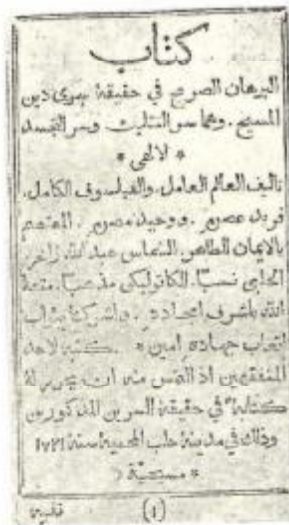 كتاب
البرهان الصريح في حقيقة سرى دين
المسيح. وهما سر التثليث وسر التجسد
* الالهى *
تاليف العالم العامل. والفيلسوف الكامل.
فريد عصره. ووحيد مصره. المعتصم
بالايمان الطاهر. الشماس عبد الله زاخر
الحلبي نسبًا. الكاثوليكي مذهبًا. متعهُ
الله باشرف امجاده. واشركنا بثواب
اتعاب جهاده امين * كتبهُ لاحد
المنفقهين اذ التمس منه ان يحرر لهُ
كتابة في حقيقة السرين المذكورين
وذلك في مدينة حلب المحمية سنة ١٧٢١
* مسيحيّة *
(١)